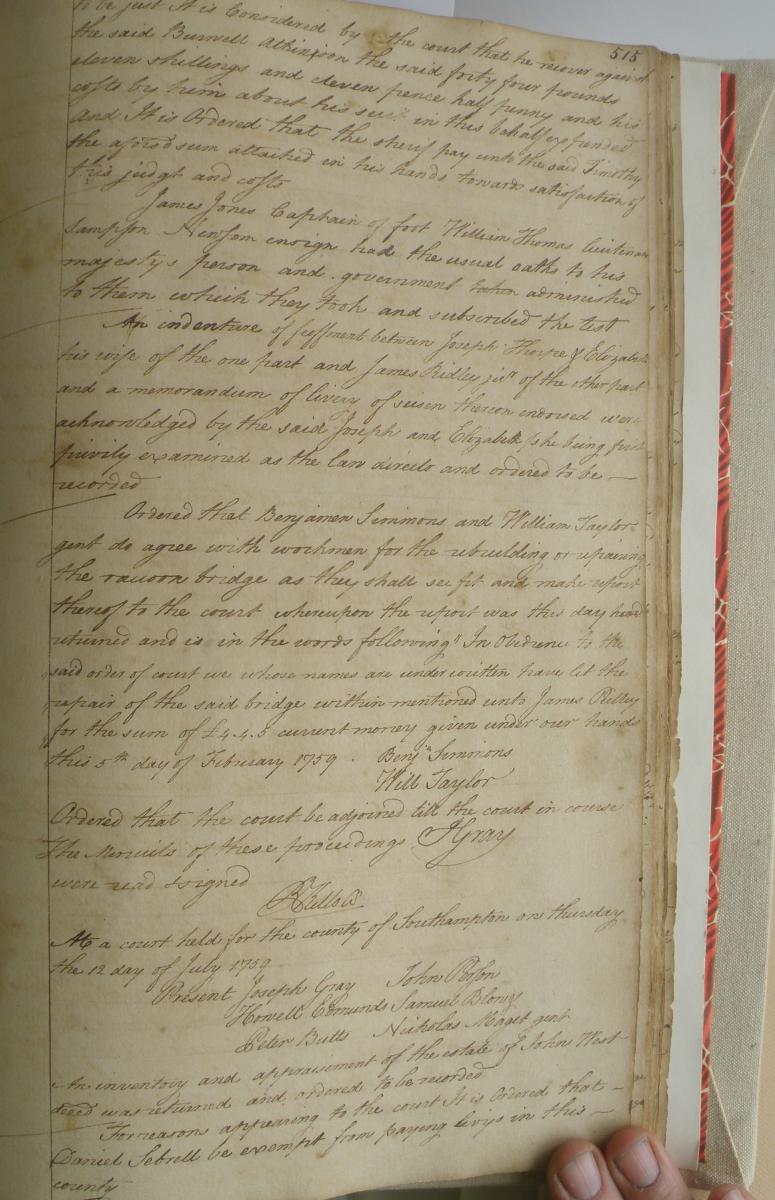 515
to be just It is Considered by the court that he recover against
the said Burwell Atkinson the said forty four pounds
eleven shillings and eleven pence half penny and his
costs by him about his suit in this behalf expended
And It is Ordered that the sherif pay unto the said Timothy
the aforesd sum attached in his hands towards satisfaction of
this judgt and costs
James Jones Captain of foot William Thomas lieutenan
Sampson Newsom ensign had the usual oaths to his
majestys person and government taken administred
to them which they took and subscribed the test
An indenture of feffment between Joseph Thorpe & Elizabeth
his wife of the one part and James Ridley junr of the other part
and a memorandum of livery of seisen thereon endorsed were
acknowledged by the said Joseph and Elizabeth she being first
privily examined as the law directs and ordered to be —
recorded
Ordered that Benjamen Simmons and William Taylor
gent do agree with workmen for the rebuilding or repairing
the racoon bridge as they shall see fit and make report
thereof to the court whereupon the report was this day
returned and is in the words following" In Obidience to the
said order of court we whose names are under written have let the
repair of the said bridge within mentioned unto James Ridley
for the sum of £4.4.5 current money given under our hands
this 5th day of February 1759. Benjn Simmons
Will Taylor
Ordered that the court be adjorned till the court in course
The Menuits of these proceedings JGray
were read & signed
RKello
At a court held for the county of Southampton on thursday
the 12 day of July 1759
Present Joseph Gray John Person
Howell Edmunds Samuel Blow
Peter Butts Nicholas Maget gent
An inventory and appraisement of the estate of John West
deced was returned and ordered to be recorded
For reasons appearing to the court It is Ordered that —
Daniel Sebrell be exempt from paying levys in this —
county